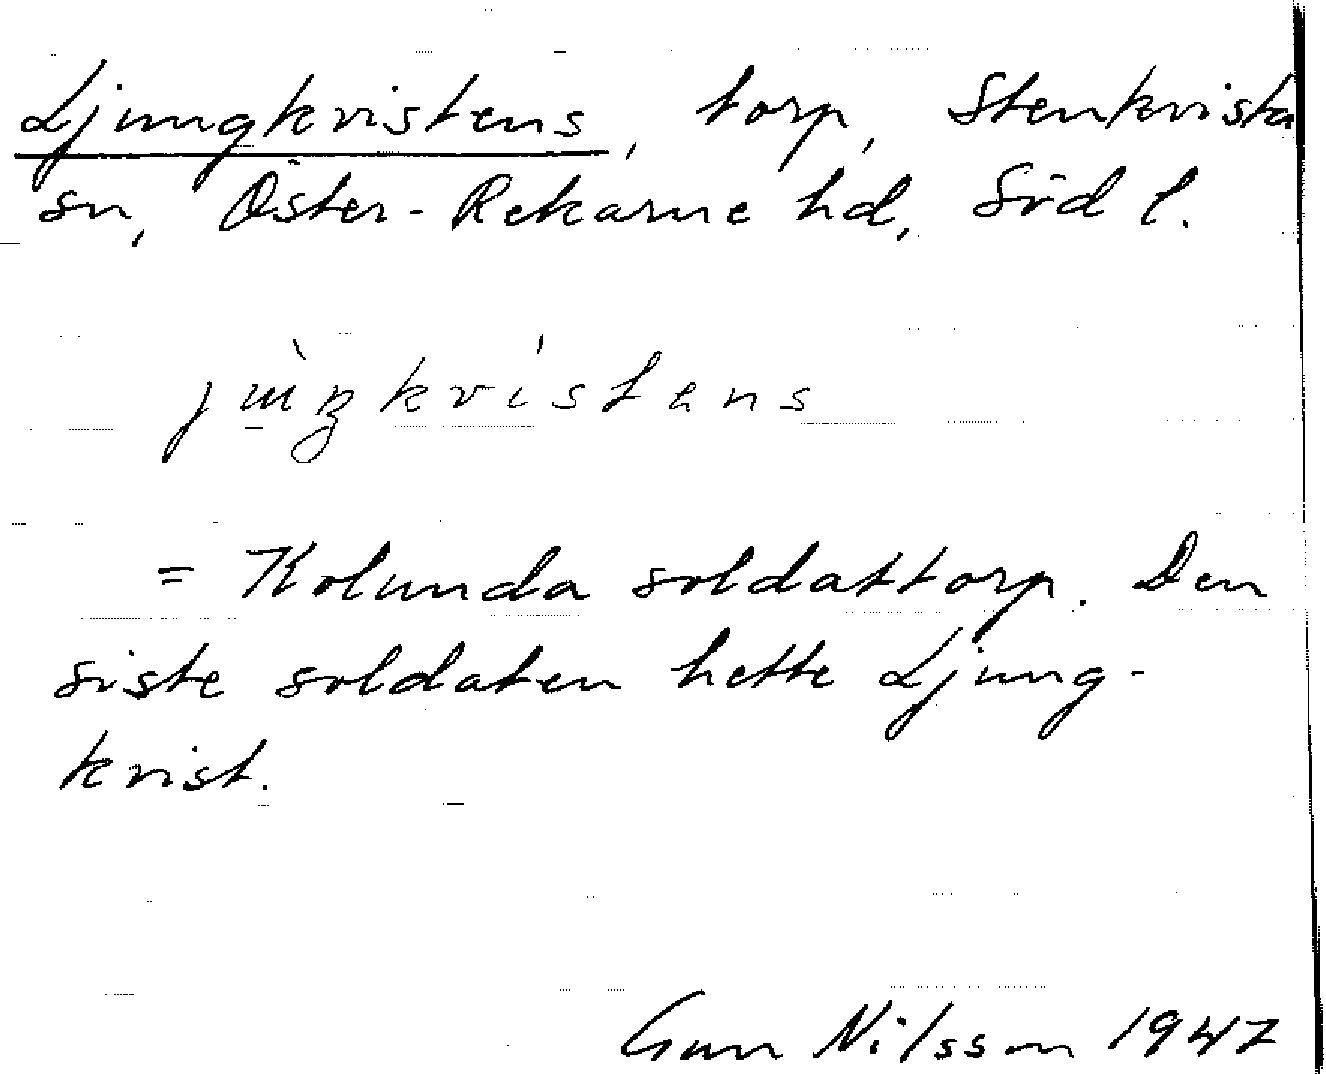 Ljungkvistens, torp, Stenkvista
sn, Öster-Rekarne hd, Söd l.
= Kolunda soldattorp. Den
siste soldaten hette Ljung-
kvist.
Gun Nilsson 1947